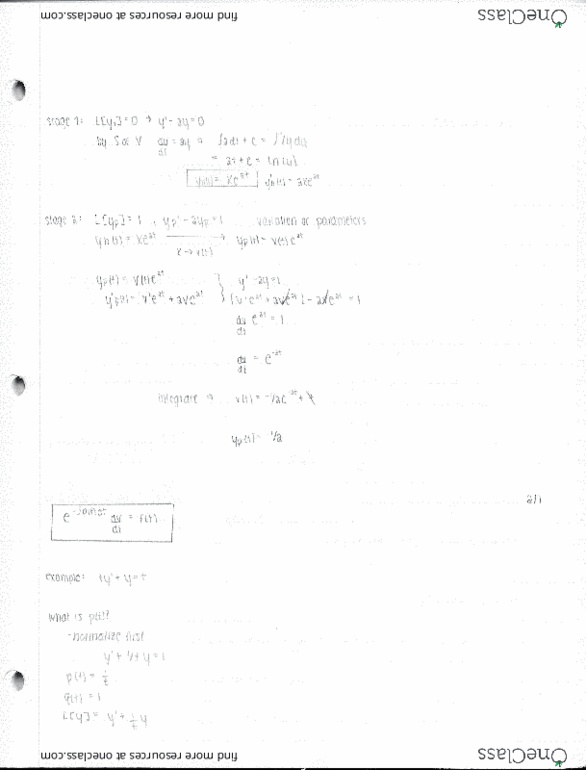 find more resources at oneclass.com
OneClass
stage 1: L[y₁]=0 → y'-2y=0
by SoV dy/dt = 2y → ∫2dt+c = ∫1/y dy
= 2t+c = ln|y|
yₕ(t) = Ke^2t
stage 2: L[yp]=1, yp'-2yp=1 variation of parameters
yₕ(t) = Ke^2t → yp(t) = v(t)e^2t
K→v(t)
yp(t) = v(t)e^2t
y'p(t) = v'e^2t + 2ve^2t
y'-2y=1
(v'e^2t + 2ve^2t) - 2ve^2t = 1
dv/dt e^2t = 1
dv/dt = e^-2t
integrate →
2/1
dv/dt = f(t)
example: ty'+y=t
what is p(t)?
-normalize first
y' + 1/t y = 1
p(t) = 1/t
q(t) = 1
L[y] = y' + 1/t y
find more resources at oneclass.com
OneClass